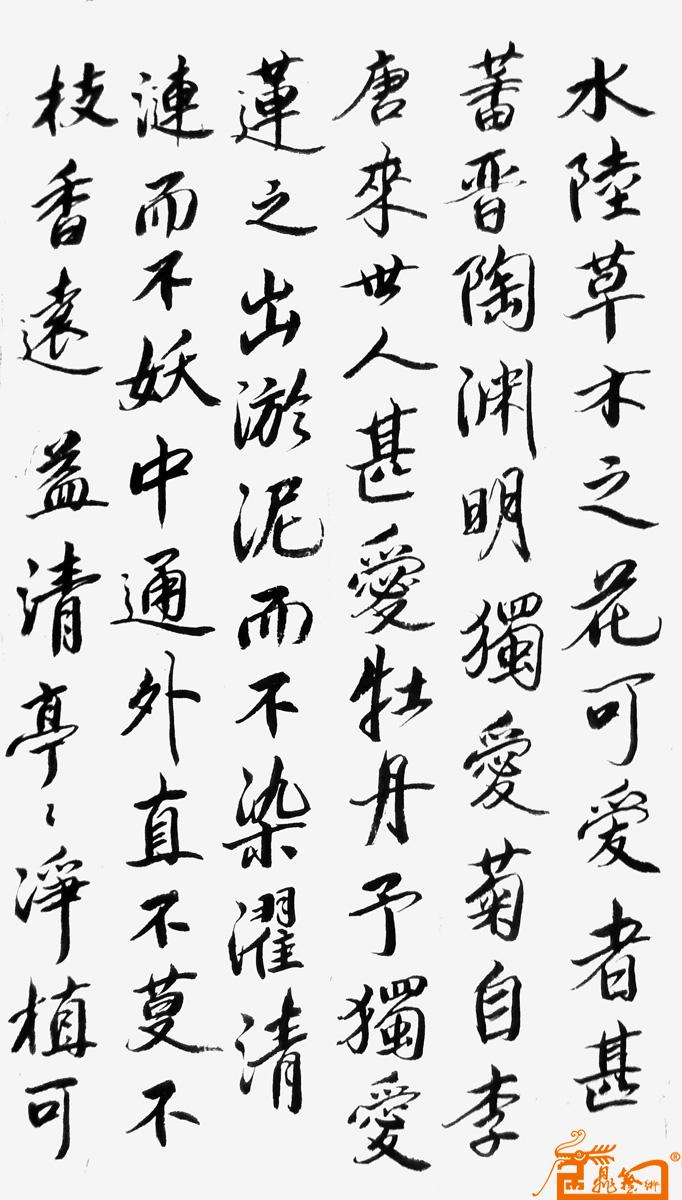 水陸草木之花可爱者甚
蕃晋陶渊明獨愛菊自李
唐來世人甚愛牡丹予獨愛
蓮之出淤泥而不染濯清
漣而不妖中通外直不蔓不
枝香遠益清亭〻淨植可